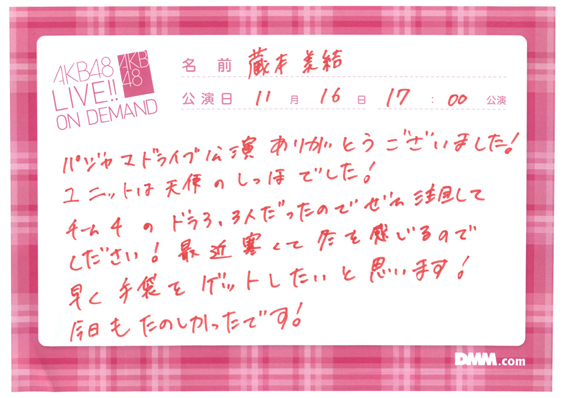 AKB48
LIVE!!
ON DEMAND
AKB
48
名 前 蔵本 美結
公演日 11 月 16 日 17 : 00 公演
パジャマドライブ公演 ありがとうございました!
ユニットは天使のしっぽでした!
チーム4 のドラ3、3人だったのでぜひ注目して
ください! 最近寒くて冬を感じるので
早く手袋をゲットしたいと思います!
今日もたのしかったです!
DMM.com